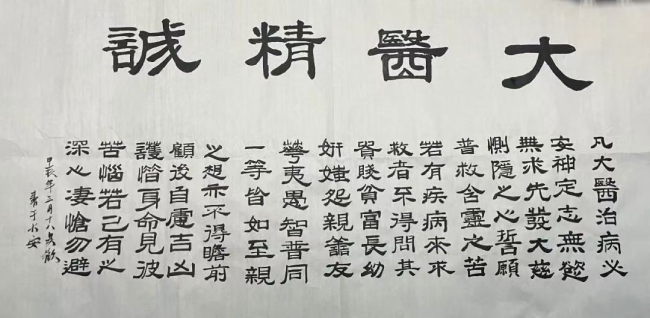 大醫精誠
凡大醫治病必
安神定志無慾
無求先發大慈
惻隱之心誓願
普救含靈之苦
若有疾病來求
救者不得問其
貴賤貧富長幼
妍媸怨親善友
華夷愚智普同
一等皆如至親
之想亦不得瞻前
顧後自慮吉凶
護惜身命見彼
苦惱若己有之
深心淒愴勿避
甲辰年